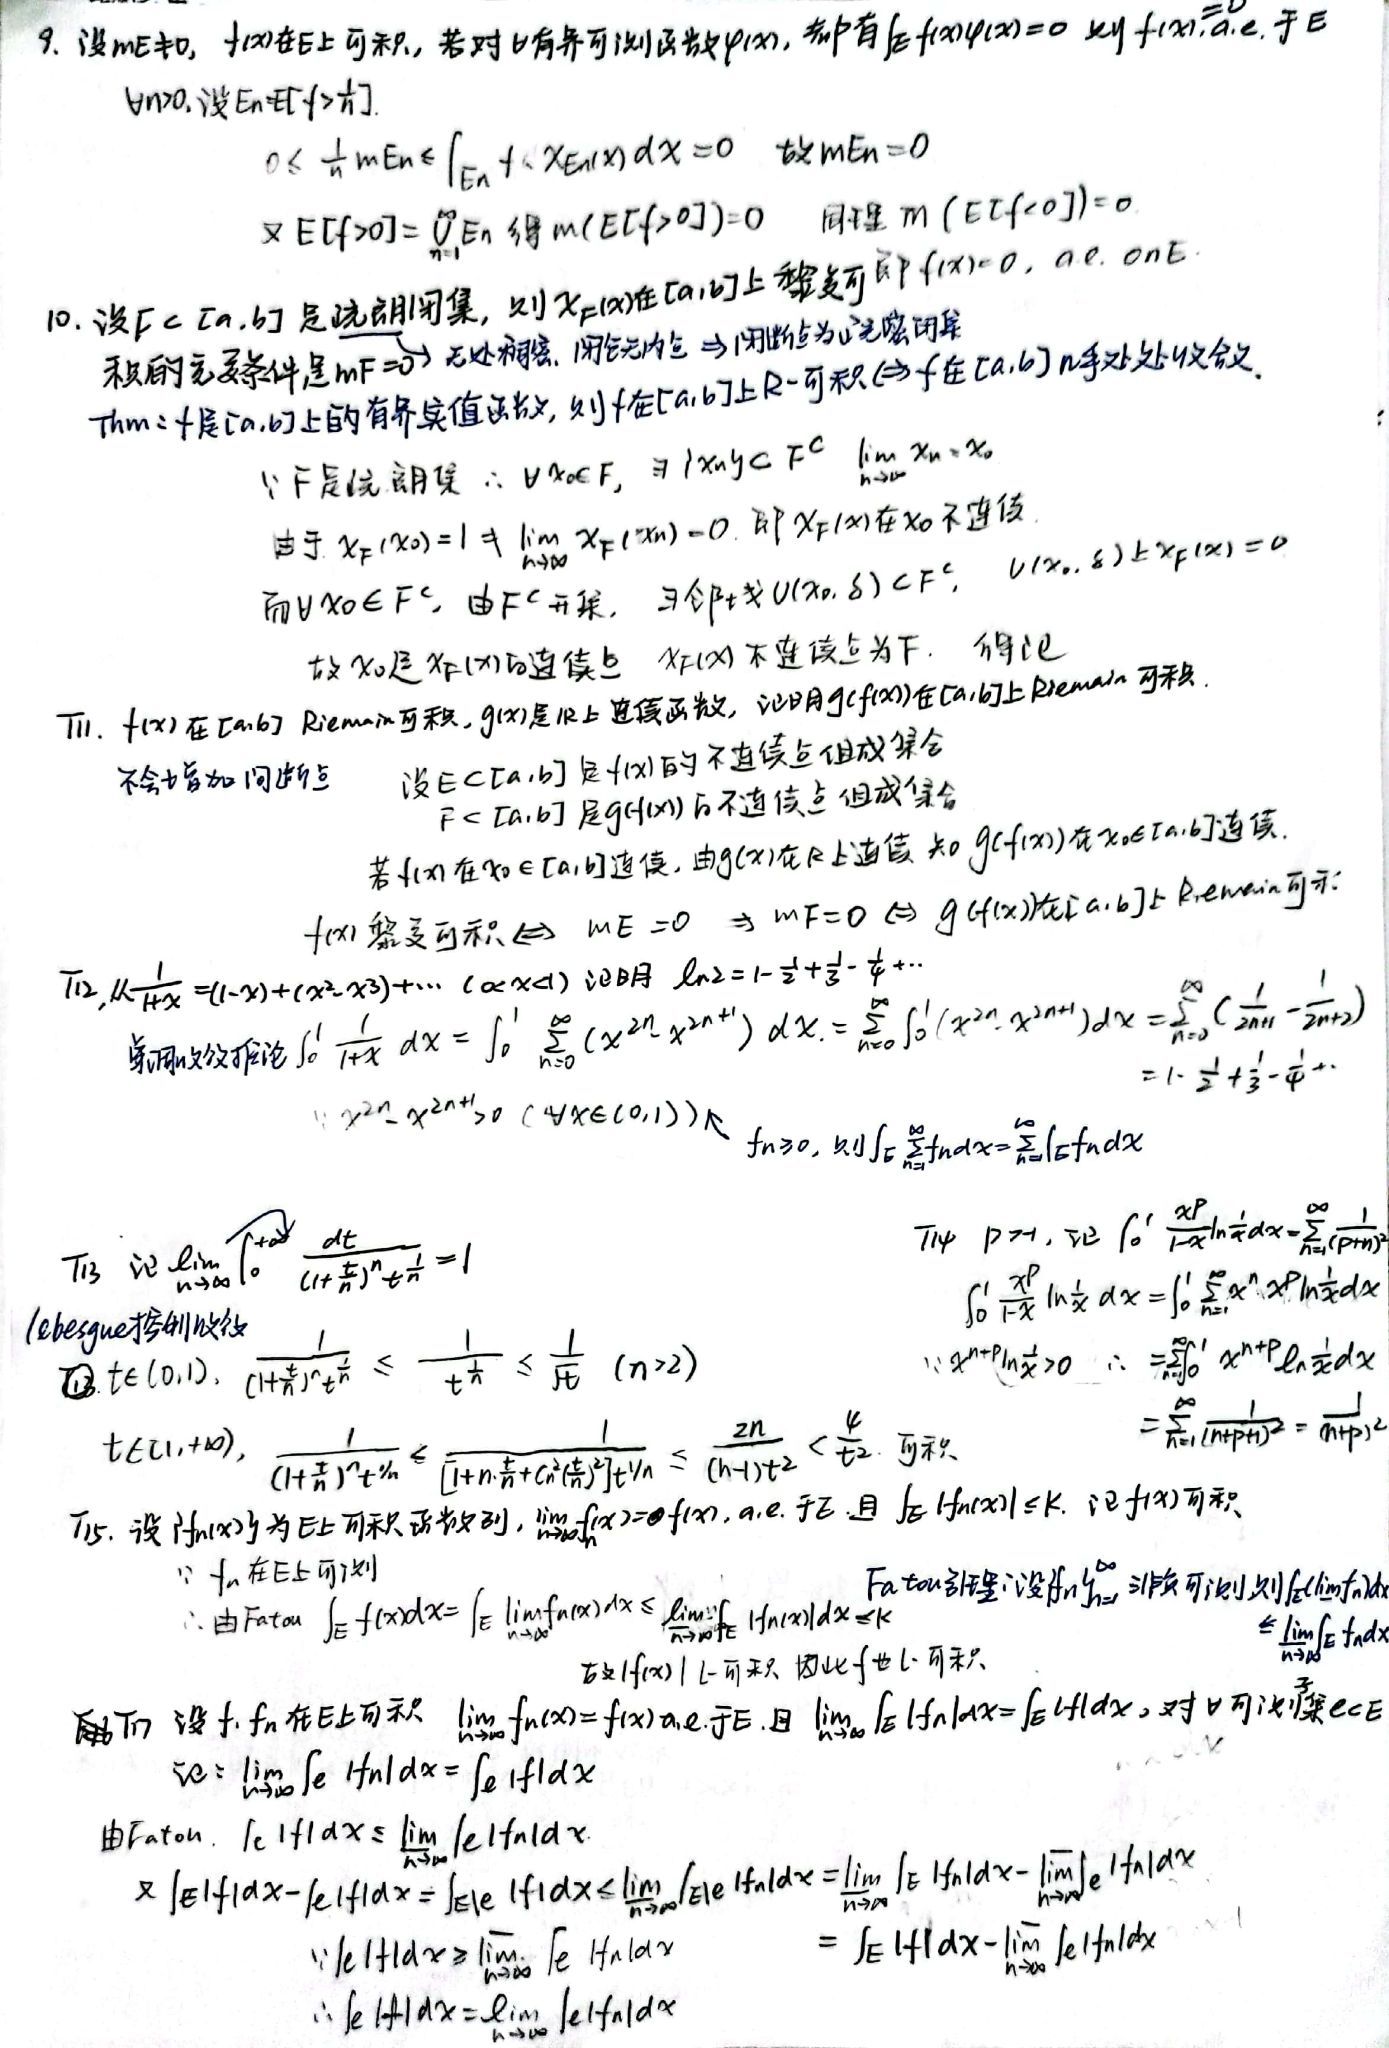 9. 设mE≠0, f(x)在E上可积, 若对∀有界可测函数φ(x), 都有∫_E f(x)φ(x)=0 则 f(x)=0 a.e. 于E
∀n>0, 设En=E[f>1/n].
0≤ 1/n mEn ≤ ∫_En f·χ_En(x) dx=0 故mEn=0
又E[f>0]=∪_{n=1}^∞ En 得 m(E[f>0])=0 同理 m(E[f<0])=0
即 f(x)=0, a.e. on E.
10. 设F⊂[a,b]是疏朗闭集, 则χ_F(x)在[a,b]上黎曼可
积的充要条件是mF=0 → 无处稠密. 闭包无内点 ⇒ 间断点为 闭集
Thm: f是[a,b]上的有界实值函数, 则f在[a,b]上R-可积⇔f在[a,b]
∵F是疏朗集 ∴∀x0∈F, ∃{xn}⊂F^c lim_{n→∞} xn=x0
由于 χ_F(x0)=1≠ lim_{n→∞} χ_F(xn)=0. 即χ_F(x)在x0不连续.
而∀x0∈F^c, 由F^c开集, ∃邻域U(x0,δ)⊂F^c, U(x0,δ)上χ_F(x)=0
故x0是χ_F(x)的连续点 χ_F(x)不连续点为F. 得证
T11. f(x)在[a,b] Riemain可积, g(x)是R上连续函数, 证明g(f(x))在[a,b]上Riemain可积.
不会增加间断点 设E⊂[a,b]是f(x)的不连续点组成集合
F⊂[a,b]是g(f(x))的不连续点组成集合
若f(x)在x0∈[a,b]连续, 由g(x)在R上连续 知g(f(x))在x0∈[a,b]连续.
f(x)黎曼可积⇔ mE=0 ⇒ mF=0 ⇔ g(f(x))在[a,b]上Riemain可积
T12, 从 1/(1+x) =(1-x)+(x²-x³)+⋯ (0<x<1) 证明 ln2=1-1/2+1/3-1/4+⋯
单调收敛推论 ∫_0^1 1/(1+x) dx = ∫_0^1 ∑_{n=0}^∞ (x^{2n}-x^{2n+1}) dx = ∑_{n=0}^∞ ∫_0^1 (x^{2n}-x^{2n+1})dx = ∑_{n=0}^∞ (1/(2n+1) - 1/(2n+2))
=1-1/2+1/3-1/4+⋯
∵x^{2n}-x^{2n+1}>0 (∀x∈(0,1)) ↖
fn≥0, 则∫_E ∑_{n=1}^∞ fn dx=∑_{n=1}^∞ ∫_E fn dx
T13 证 lim_{n→∞} ∫_0^{+∞} dt/((1+t/n)^n t^{1/n}) =1
lebesgue控制收敛
T13. t∈(0,1), 1/((1+t/n)^n t^{1/n}) ≤ 1/t^{1/n} ≤ 1/√t (n>2)
t∈[1,+∞), 1/((1+t/n)^n t^{1/n}) ≤ 1/([1+n·t/n+C_n^2(t/n)^2]t^{1/n}) ≤ 2n/((n-1)t²) < 4/t². 可积
T14 p>-1, 证 ∫_0^1 x^p/(1-x) ln 1/x dx=∑_{n=1}^∞ 1/(p+n)²
∫_0^1 x^p/(1-x) ln 1/x dx =∫_0^1 ∑_{n=1}^∞ x^n x^p ln 1/x dx
∵x^{n+p}ln 1/x>0 ∴ =∑_{n=1}^∞ ∫_0^1 x^{n+p} ln 1/x dx
=∑_{n=1}^∞ 1/(n+p+1)² = 1/(n+p)²
T15. 设{fn(x)}为E上可积函数列, lim_{n→∞} fn(x)=f(x), a.e. 于E. 且∫_E |fn(x)|≤K. 证f(x)可积
∵ fn在E上可测
∴由Fatou ∫_E f(x)dx=∫_E lim_{n→∞} fn(x)dx ≤ lim_{n→∞} ∫_E |fn(x)|dx≤K
故|f(x)| L-可积 因此f也L-可积
Fatou引理: 设{fn}_{n=1}^∞ 非负可测则∫_E(lim fn)dx
≤ lim_{n→∞} ∫_E fn dx
T17 设f. fn在E上可积 lim_{n→∞} fn(x)=f(x) a.e.于E. 且 lim_{n→∞} ∫_E |fn|dx=∫_E |f|dx, 对∀可测子集e⊂E
证: lim_{n→∞} ∫_e |fn|dx=∫_e |f|dx
由Fatou. ∫_e |f|dx≤ lim_{n→∞} ∫_e |fn|dx.
又∫_E|f|dx-∫_e|f|dx=∫_{E\e} |f|dx≤ lim_{n→∞} ∫_{E\e} |fn|dx = lim_{n→∞} ∫_E |fn|dx- lim_{n→∞} ∫_e |fn|dx
=∫_E |f|dx- lim_{n→∞} ∫_e |fn|dx
∵∫_e|f|dx≥ lim_{n→∞} ∫_e |fn|dx
∴∫_e |f|dx=lim_{n→∞} ∫_e|fn|dx